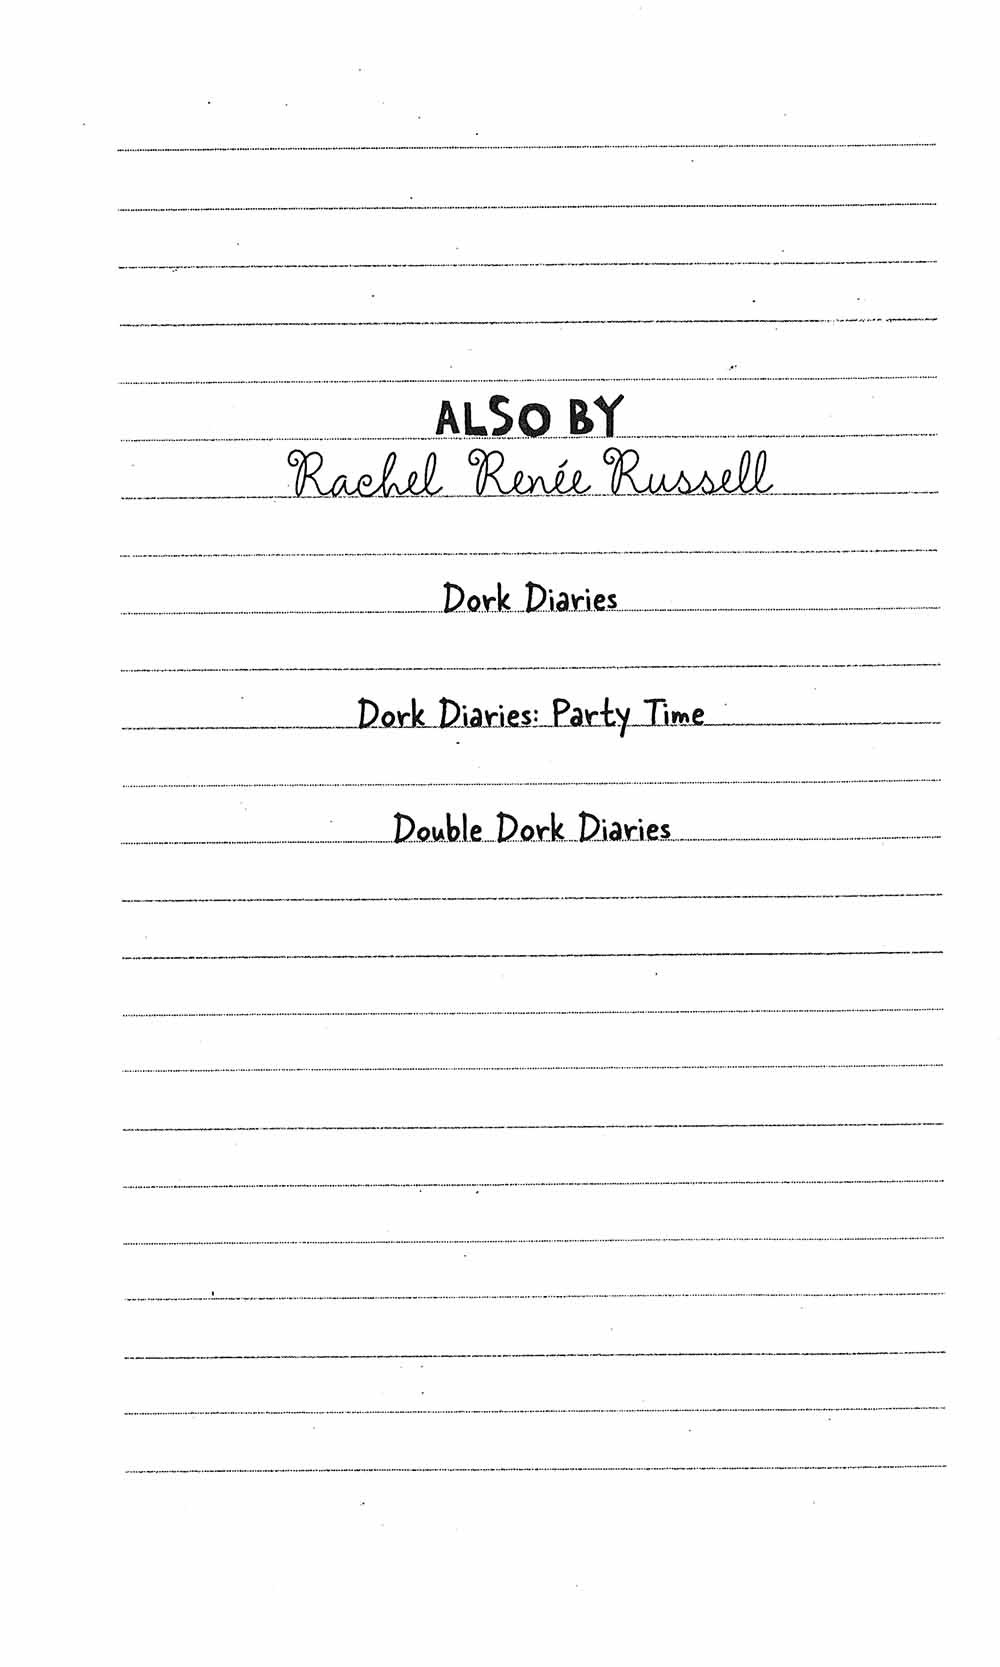 ALSO BY
Rachel Renée Russell
Dork Diaries
Dork Diaries: Party Time
Double Dork Diaries